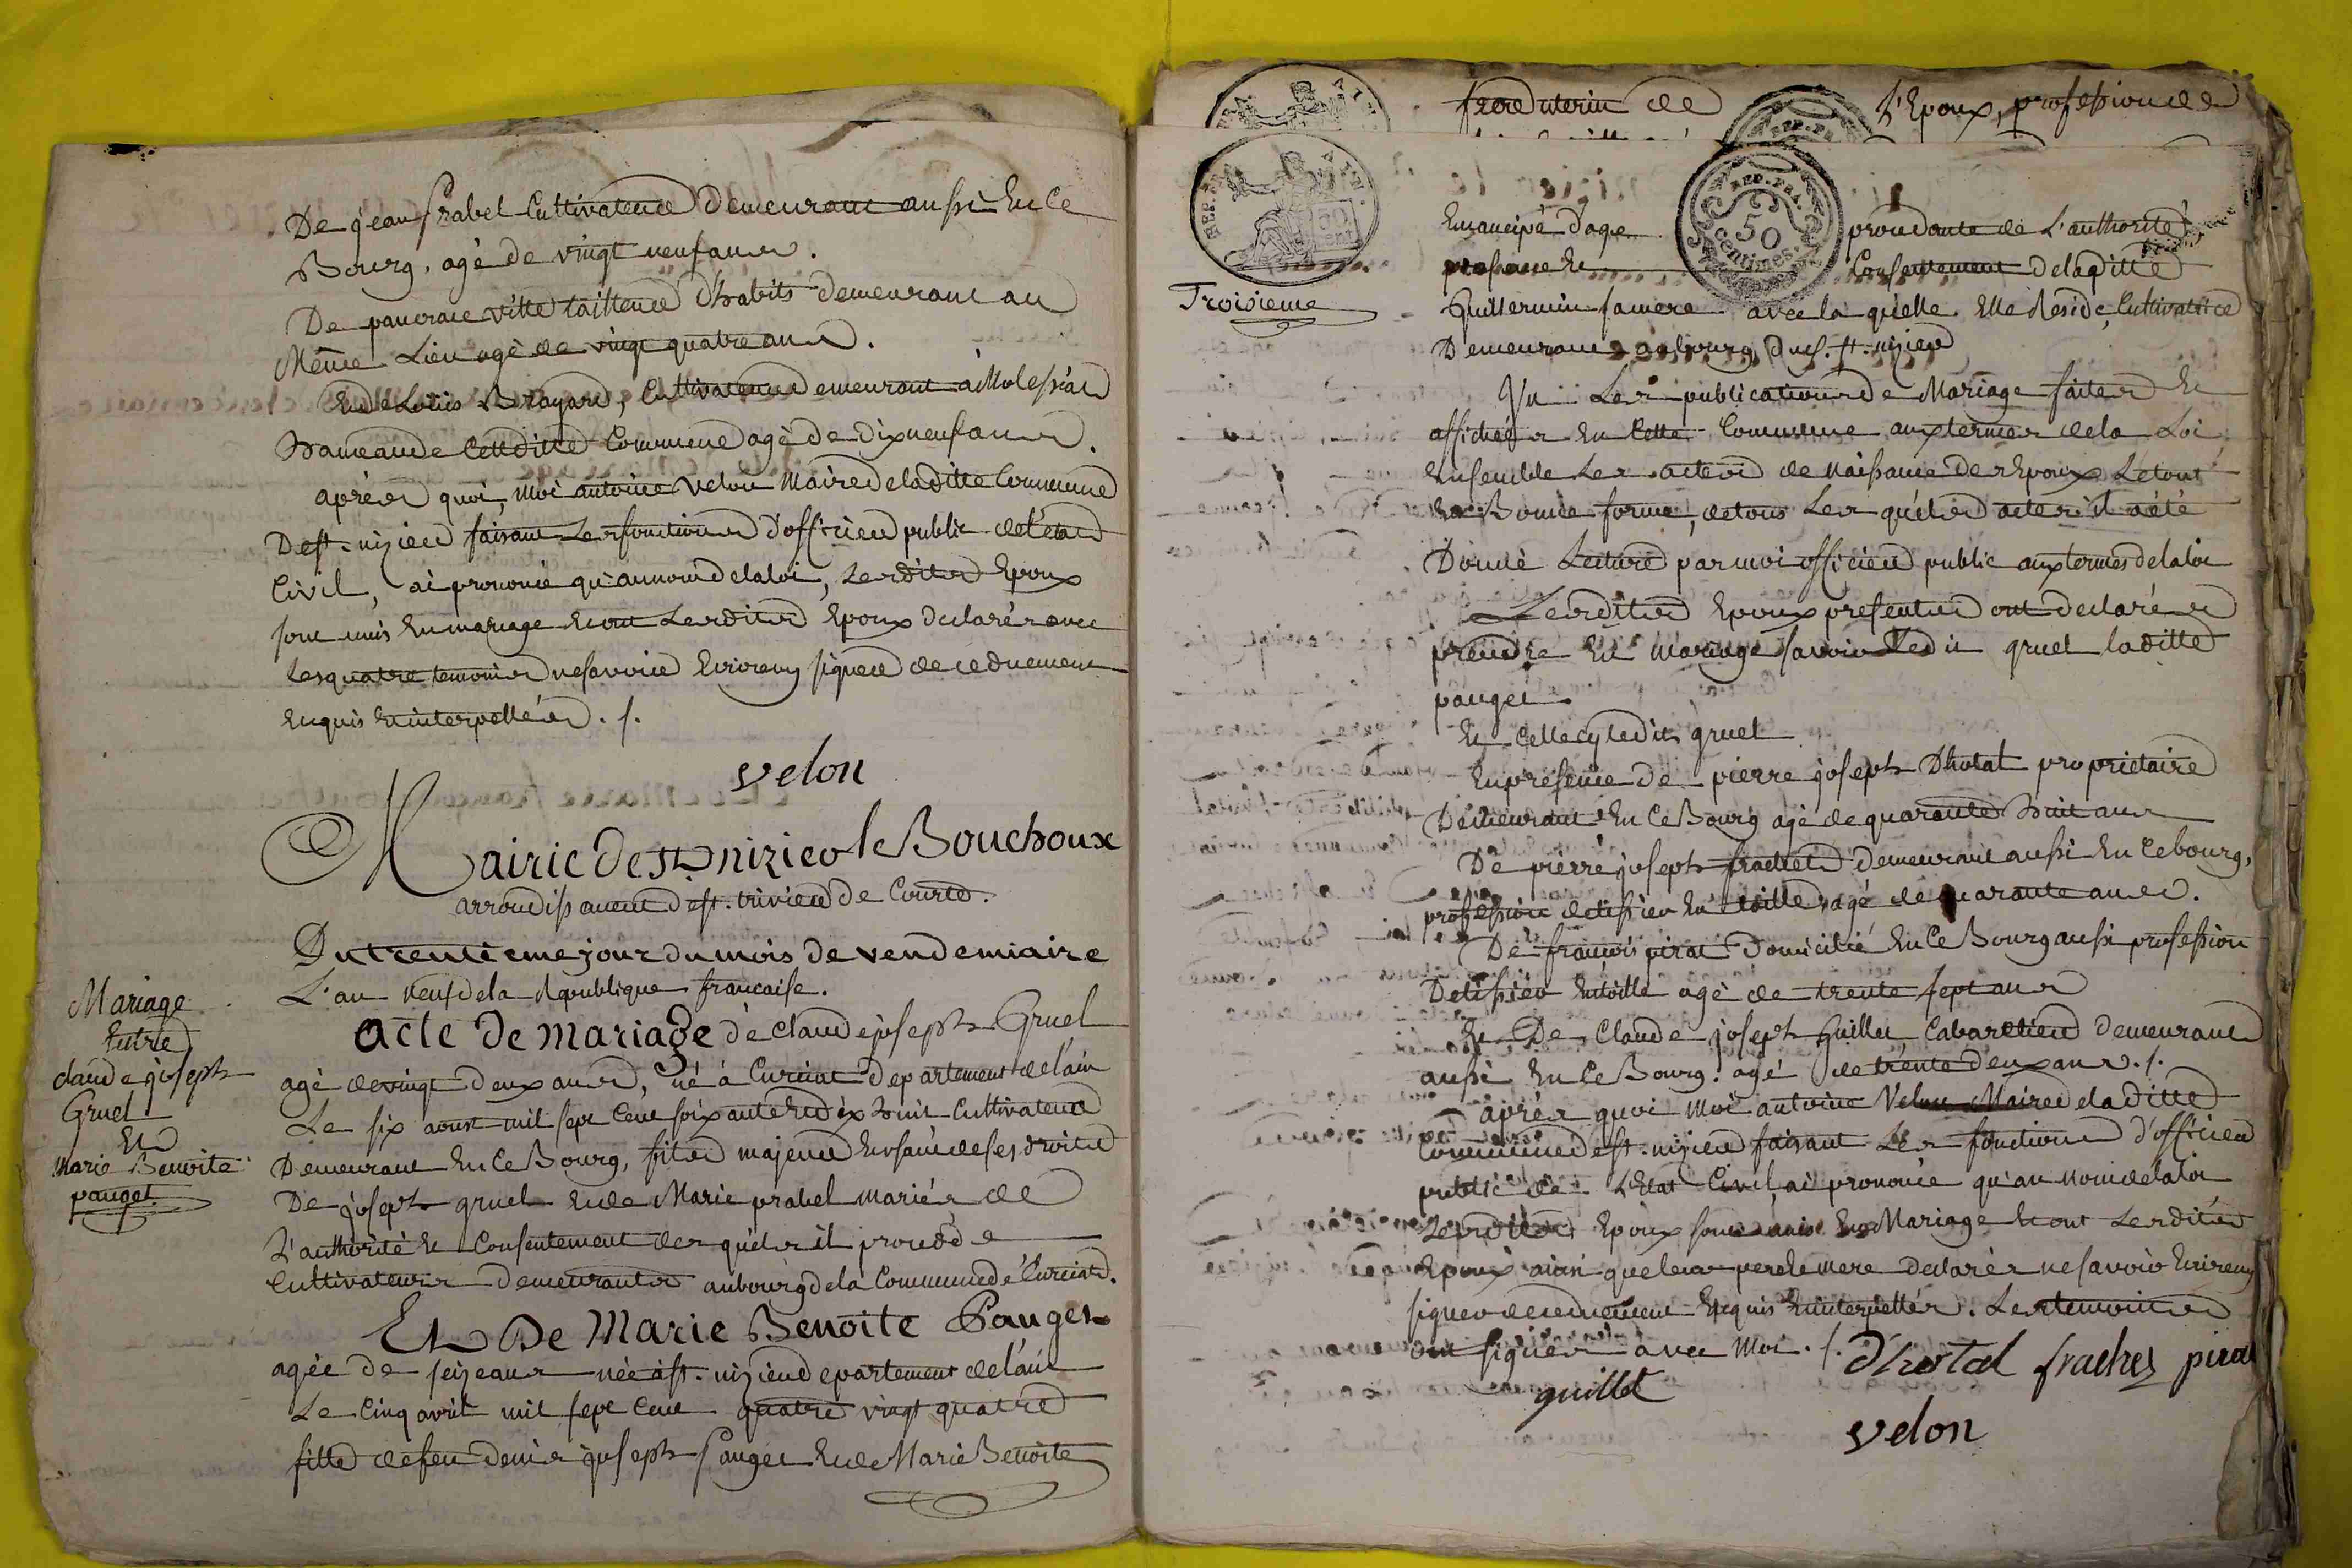 De jean prabel Cultivateur demeurant aussi En Ce
Bourg, agé de vingt neuf ans.
De pancrace vitte tailleur d'habits demeurant au
Même Lieu agé de vingt quatre ans.
Et de Louis Brayard, Cultivateur demeurant à Molessiat
hameau de Cettditte Commune agé de dix neuf ans.
après quoi, moi antoine velon Maire de laditte Commune
De st. nizier faisant Les fonctions d'officier public de l'état
Civil, ai prononcé qu'au nom de la loi, Lesdits Epoux
sont unis En mariage Et ont Lesdits Epoux declarés avec
Les quatre temoins ne savoir Ecrire ny signer de ce duement
Enquis Et interpellés . /.
velon
Mairie de st nizier le Bouchoux
arrondissement de st. trivier de Courte.
Du trentieme jour du mois de vendemiaire
L'an neuf de la Republique francaise.
Mariage
Entre
claude joseph
Gruel
Et
Marie Benoite
pauget
acte de mariage de claude joseph Gruel
agé de vingt deux ans, né à Curciat departement de l'ain
Le six aoust mil sept Cent soixante Et dix huit Cultivateur
Demeurant En Ce Bourg, fils majeur Et usant de ses droits
De joseph gruel Et de Marie prabel mariés de
L'authorité Et Consentement desquels il procède
Cultivateurs demeurants au bourg de la Commune de Curciat.
Et De Marie Benoite Pauget
agée de seize ans née à st. nizier departement de l'ain
Le Cinq avril mil sept Cent quatre vingt quatre
fille de feu denis joseph Pauget Et de Marie Benoite
frere uterin de L'Epoux, profession de
REP. FRA.
50
Centimes
Troisieme
Emancipé d'age procedante de L'authorité
presence Et Consentement de laditte
Guillermin sa mere avec la quelle Elle Reside, Cultivatrice
Demeurant au bourg dud. st. nizier
Vu Les publications de Mariage faites Et
affichées En Cette Commune aux termes de la Loi
Ensemble Les actes de naissance des Epoux Le tout
En Bonne forme, de tous Les quels actes il a été
Donné Lecture par moi officier public aux termes de la loi
Lesdits Epoux presents ont declarés
prendre En Mariage savoir Ledit gruel laditte
pauget
Et Celle cy ledit gruel
En presence de pierre joseph Dhotal proprietaire
Demeurant En Ce Bourg agé de quarante huit ans
De pierre joseph frachet demeurant aussi En Ce bourg,
profession de tissier En toille, agé de quarante ans.
De françois pirat domicilié En Ce Bourg aussi profession
De tissier En toille agé de trente sept ans
Et De Claude joseph Guillet Cabaretier demeurant
aussi En Ce Bourg. agé de trente deux ans. /.
après quoi moi antoine Velon Maire de laditte
Commune de st. nizier faisant Les fonctions d'officier
public de L'Etat Civil, ai prononcé qu'au nom de la loi
Lesdits Epoux sont unis En Mariage Et ont Lesdits
Epoux ainsi que leur pere Et mere declarés ne savoir Ecrire ny
signer de ce duement Enquis Et interpellés. Les temoins
ont signés avec Moi. /.
dhotal frachez pirat
guillet
velon